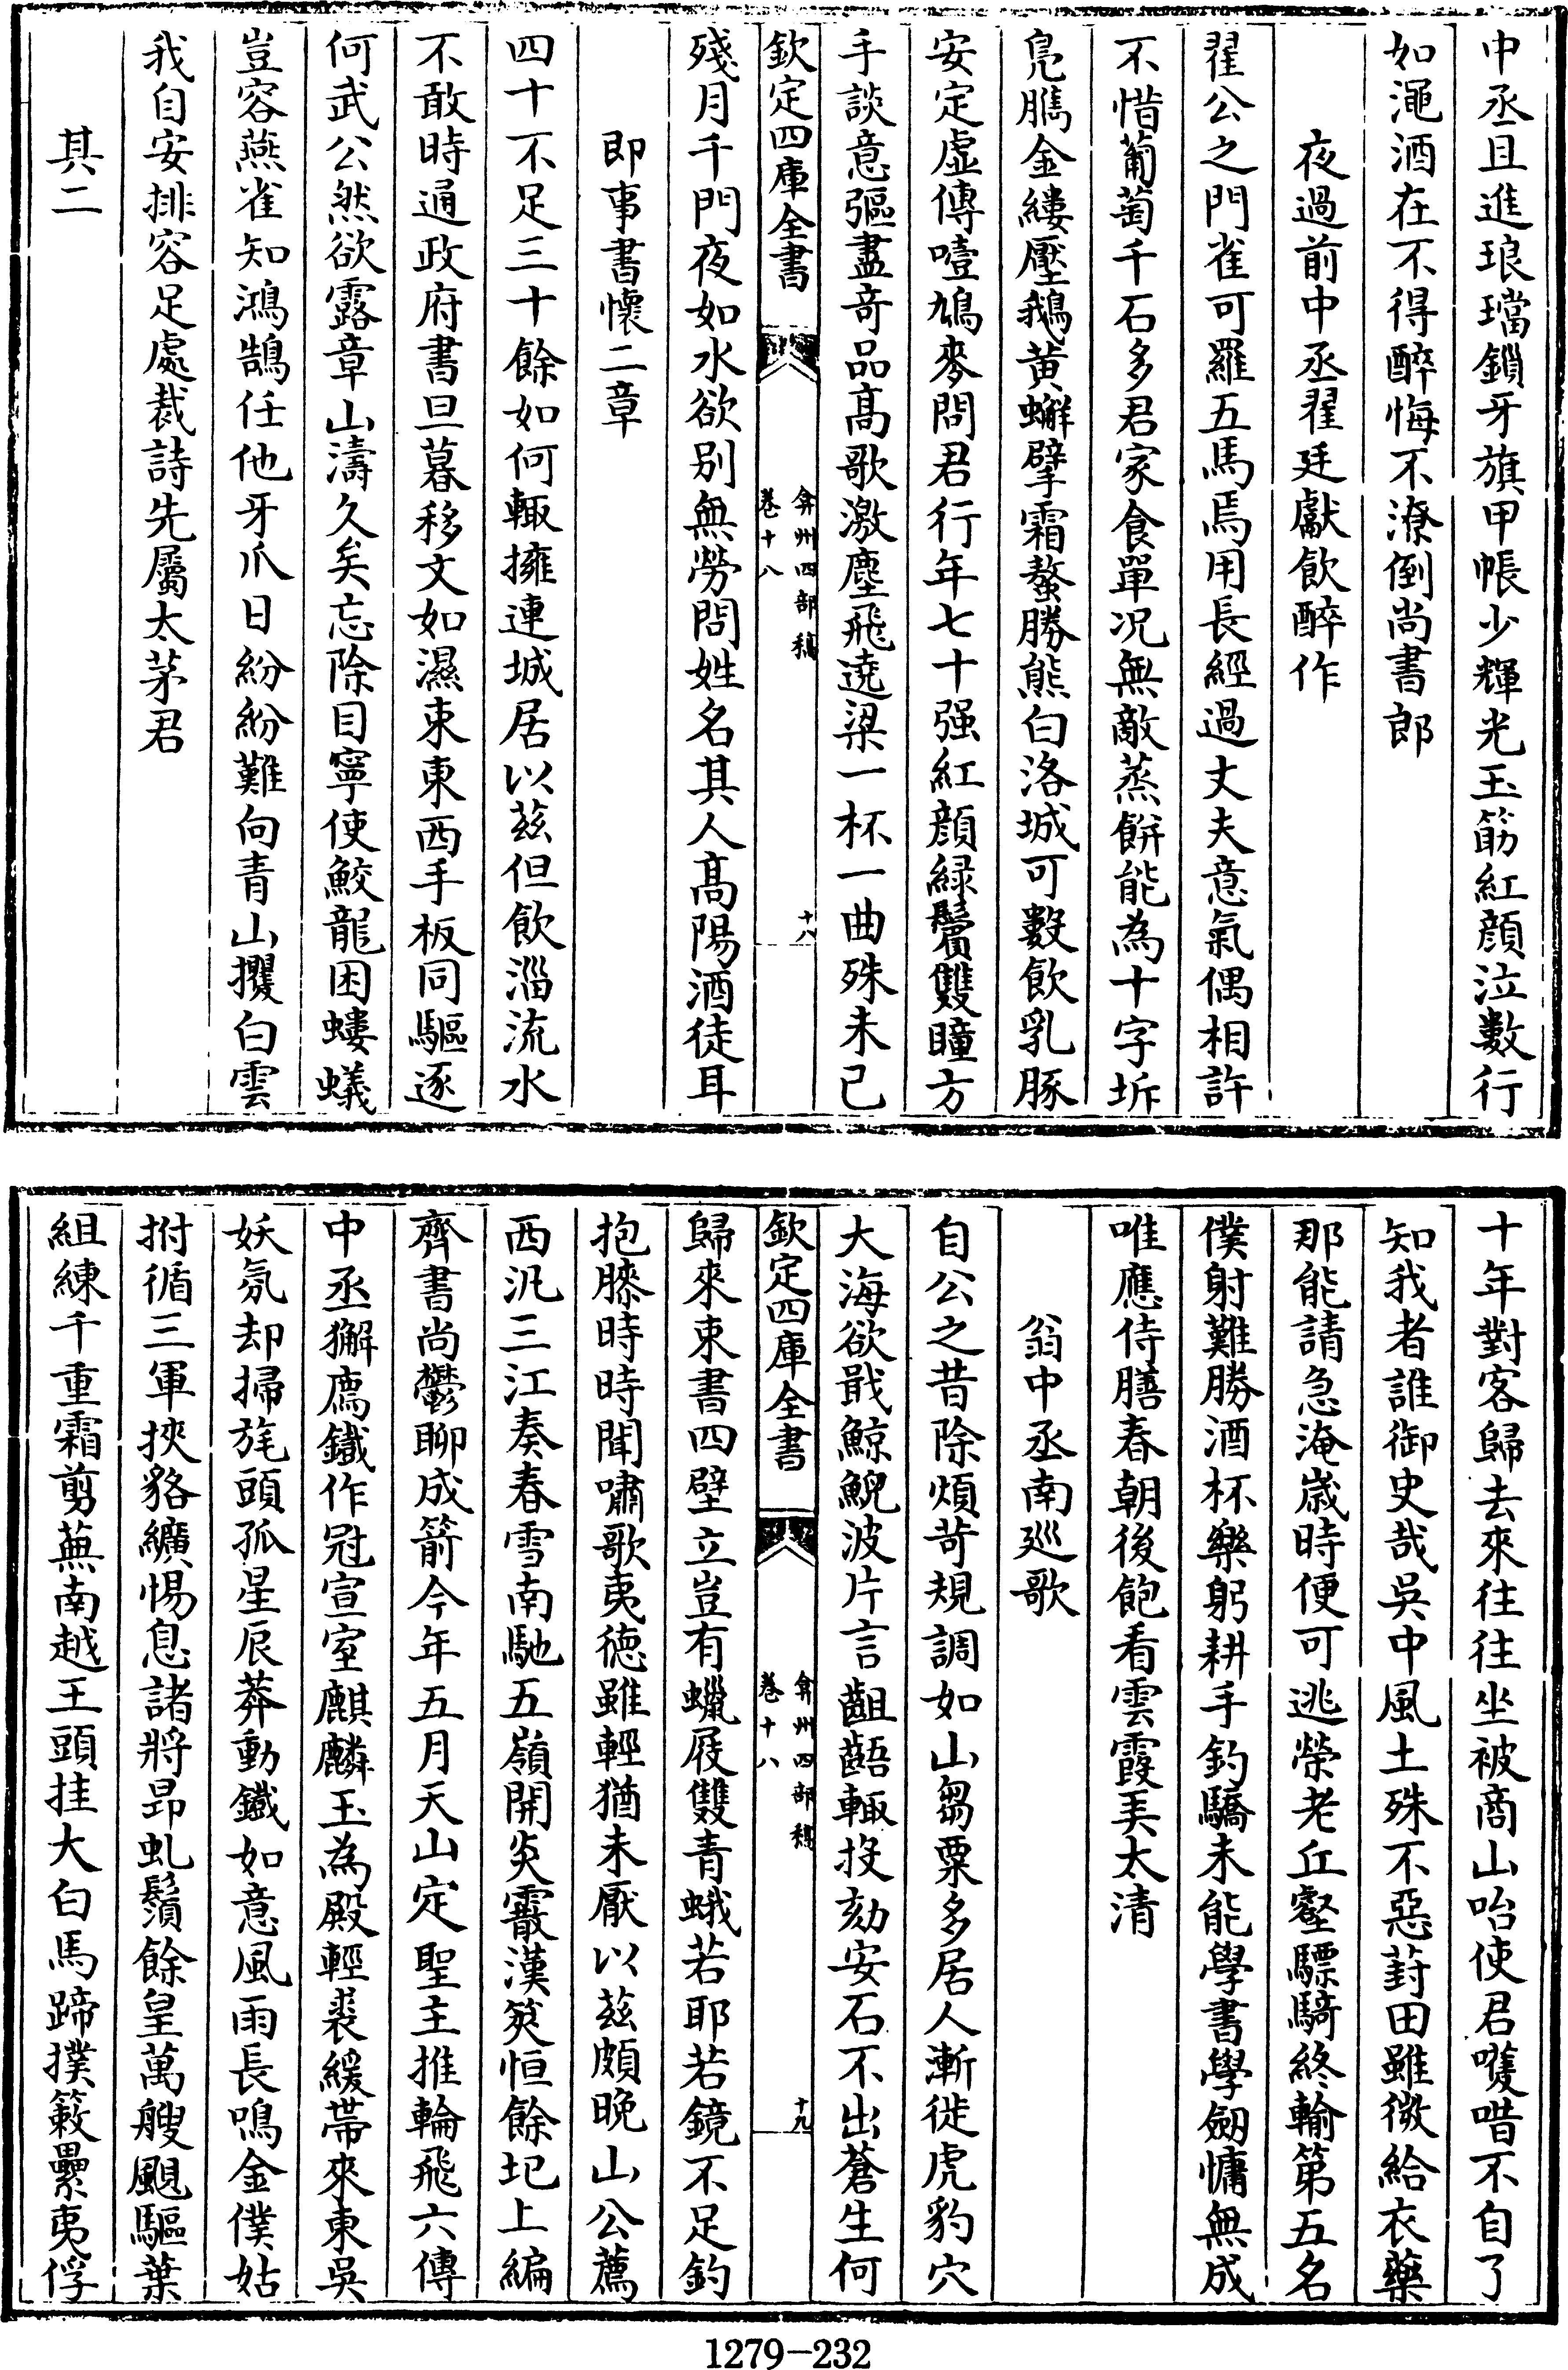 中丞且進琅璫鎖牙旗甲帳少輝光玉筯紅顔泣數行
如澠酒在不得醉悔不潦倒尚書郎
夜過前中丞翟廷獻飲醉作
翟公之門雀可羅五馬焉用長經過丈夫意氣偶相許
不惜葡萄千石多君家食單况無敵蒸餅能為十字坼
鳧臇金縷壓鵝黄蠏擘霜螯勝熊白洛城可數飲乳豚
安定虚傳噎鳩麥問君行年七十强紅顔緑鬢雙瞳方
手談意彄盡奇品髙歌激塵飛遶梁一杯一曲殊未已
欽定四庫全書
弇州四部稿
卷十八
十八
殘月千門夜如水欲别無勞問姓名其人髙陽酒徒耳
即事書懷二章
四十不足三十餘如何輙擁連城居以兹但飲淄流水
不敢時通政府書旦暮移文如濕束東西手板同驅逐
何武公然欲露章山濤久矣忘除目寧使鮫龍困螻蟻
豈容燕雀知鴻鵠任他牙爪日紛紛難向青山攫白雲
我自安排容足處裁詩先屬太茅君
其二
十年對客歸去來往往坐被商山咍使君嚄唶不自了
知我者誰御史哉吳中風土殊不惡葑田雖微給衣藥
那能請急淹歲時便可逃榮老丘壑驃騎終輸第五名
僕射難勝酒杯樂躬耕手釣驕未能學書學劒慵無成
唯應侍膳春朝後飽看雲霞美太清
翁中丞南巡歌
自公之昔除煩苛規調如山芻粟多居人漸徙虎豹穴
大海欲戢鯨鯢波片言齟齬輙投劾安石不出蒼生何
欽定四庫全書
弇州四部稿
卷十八
十九
歸來束書四壁立豈有蠟屐雙青蛾若耶若鏡不足釣
抱膝時時聞嘯歌夷德雖輕猶未厭以兹頗晚山公薦
西汎三江奏春雪南馳五嶺開炎霰漢筴恒餘圯上編
齊書尚鬱聊成箭今年五月天山定聖主推輪飛六傳
中丞獬廌鐵作冠宣室麒麟玉為殿輕裘緩帶來東吳
妖氛却掃旄頭孤星辰莽動鐵如意風雨長鳴金僕姑
拊循三軍挾貉纊惕息諸將昂虬鬚餘皇萬艘颶驅葉
組練千重霜剪蕪南越王頭挂大白馬蹄撲簌纍夷俘
1279-232